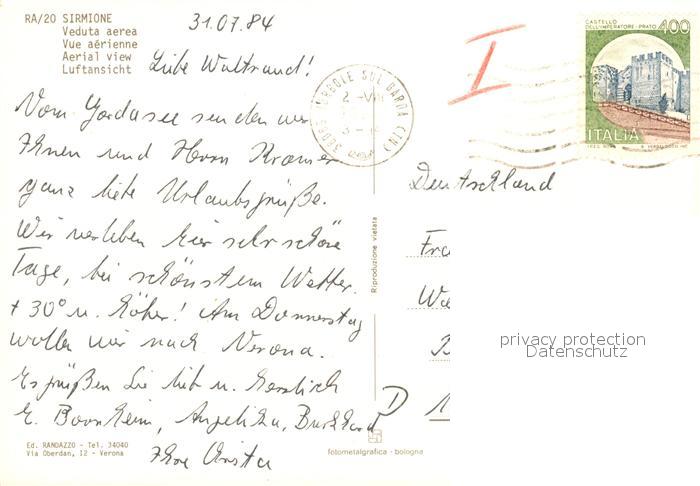 RA/20 SIRMIONE
Veduta aerea
Vue aérienne
Aerial view
Luftansicht
31.07.84
Liebe Waltraud!
Vom Gardasee senden wir
Ihnen und Herrn Kramer
ganz liebe Urlaubsgrüße.
Wir verleben hier sehr schöne
Tage, bei schönstem Wetter.
+ 30° u. höher! Am Donnerstag
wollen wir nach Verona.
Es grüßen Sie lieb u. herzlich
E. Bornheim, Angelika, Burkhard
Ihre Christa
Ed. RANDAZZO - Tel. 34040
Via Oberdan, 12 - Verona
Riproduzione vietata
fotometalgrafica - bologna
38069 TORBOLE SUL GARDA (TN)
I
CASTELLO
DELL'IMPERATORE-PRATO 400
ITALIA
Deutschland
Fra
D
privacy protection
Datenschutz